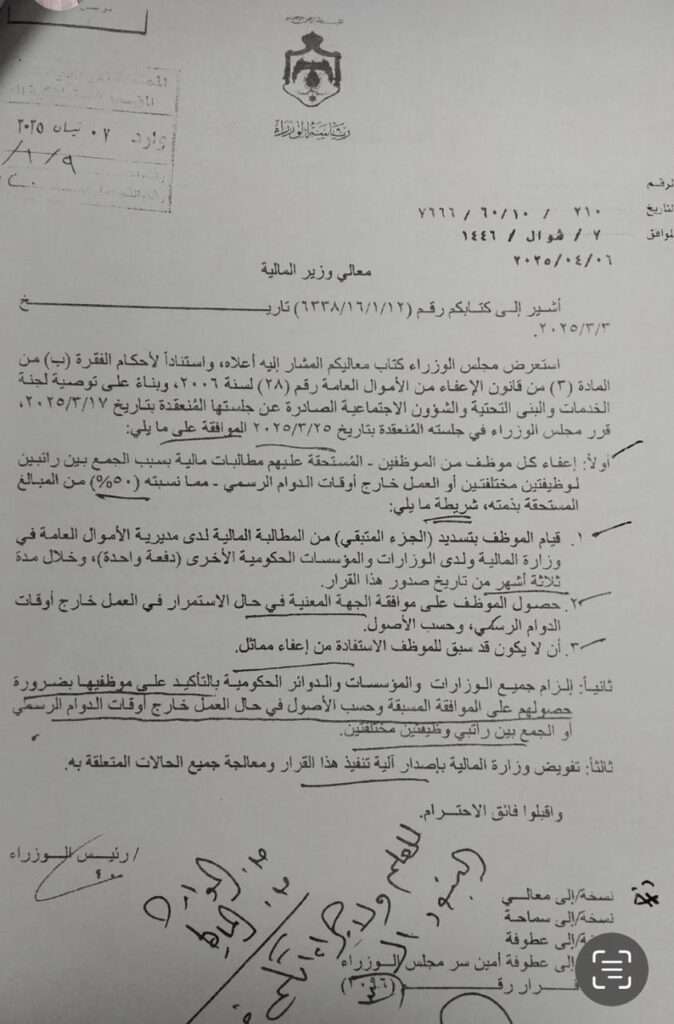 رئاسة الوزراء
وارد ٠٧ نيسان ٢٠٢٥
الرقم ٢١٠ / ٦٠/١٠ / ٧٦٦٦
التاريخ ٧ / شوال / ١٤٤٦
الموافق ٢٠٢٥/٠٤/٠٦
معالي وزير المالية
أشير إلى كتابكم رقم (٦٣٣٨/١٦/١/١٢) تاريـــخ
٢٠٢٥/٣/٣.
استعرض مجلس الوزراء كتاب معاليكم المشار إليه أعلاه، واستناداً لأحكام الفقرة (ب) من
المادة (٣) من قانون الإعفاء من الأموال العامة رقم (٢٨) لسنة ٢٠٠٦، وبناءً على توصية لجنة
الخدمات والبنى التحتية والشؤون الاجتماعية الصادرة عن جلستها المُنعقدة بتاريخ ٢٠٢٥/٣/١٧،
قرر مجلس الوزراء في جلسته المُنعقدة بتاريخ ٢٠٢٥/٣/٢٥ الموافقة على ما يلي:
أولاً: إعفاء كل موظف من الموظفين - المُستحقة عليهم مطالبات مالية بسبب الجمع بين راتبين
لوظيفتين مختلفتين أو العمل خارج أوقات الدوام الرسمي - مما نسبته (٥٠%) من المبالغ
المستحقة بذمته، شريطة ما يلي:
١. قيام الموظف بتسديد (الجزء المتبقي) من المطالبة المالية لدى مديرية الأموال العامة في
وزارة المالية ولدى الوزارات والمؤسسات الحكومية الأخرى (دفعة واحدة)، وخلال مدة
ثلاثة أشهر من تاريخ صدور هذا القرار.
٢. حصول الموظف على موافقة الجهة المعنية في حال الاستمرار في العمل خارج أوقات
الدوام الرسمي، وحسب الأصول.
٣. أن لا يكون قد سبق للموظف الاستفادة من إعفاء مماثل.
ثانياً: إلزام جميع الوزارات والمؤسسات والدوائر الحكومية بالتأكيد على موظفيها بضرورة
حصولهم على الموافقة المسبقة وحسب الأصول في حال العمل خارج أوقات الدوام الرسمي
أو الجمع بين راتبي وظيفتين مختلفتين.
ثالثاً: تفويض وزارة المالية بإصدار آلية تنفيذ هذا القرار ومعالجة جميع الحالات المتعلقة به.
واقبلوا فائق الاحترام.
/ رئيس الوزراء
نسخة/إلى معالي
نسخة/إلى سماحة
إلى عطوفة
إلى عطوفة أمين سر مجلس الوزراء
قرار رقم